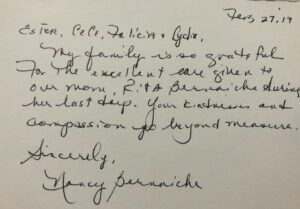 Feb, 27, 19
Ester, CeCe, Felicia & Lydia,
My family is so grateful
For the excellent care given to
our mom, Rita Bernaiche during
her last days. Your kindness and
compassion go beyond measure.
Sincerely,
Nancy Bernaiche